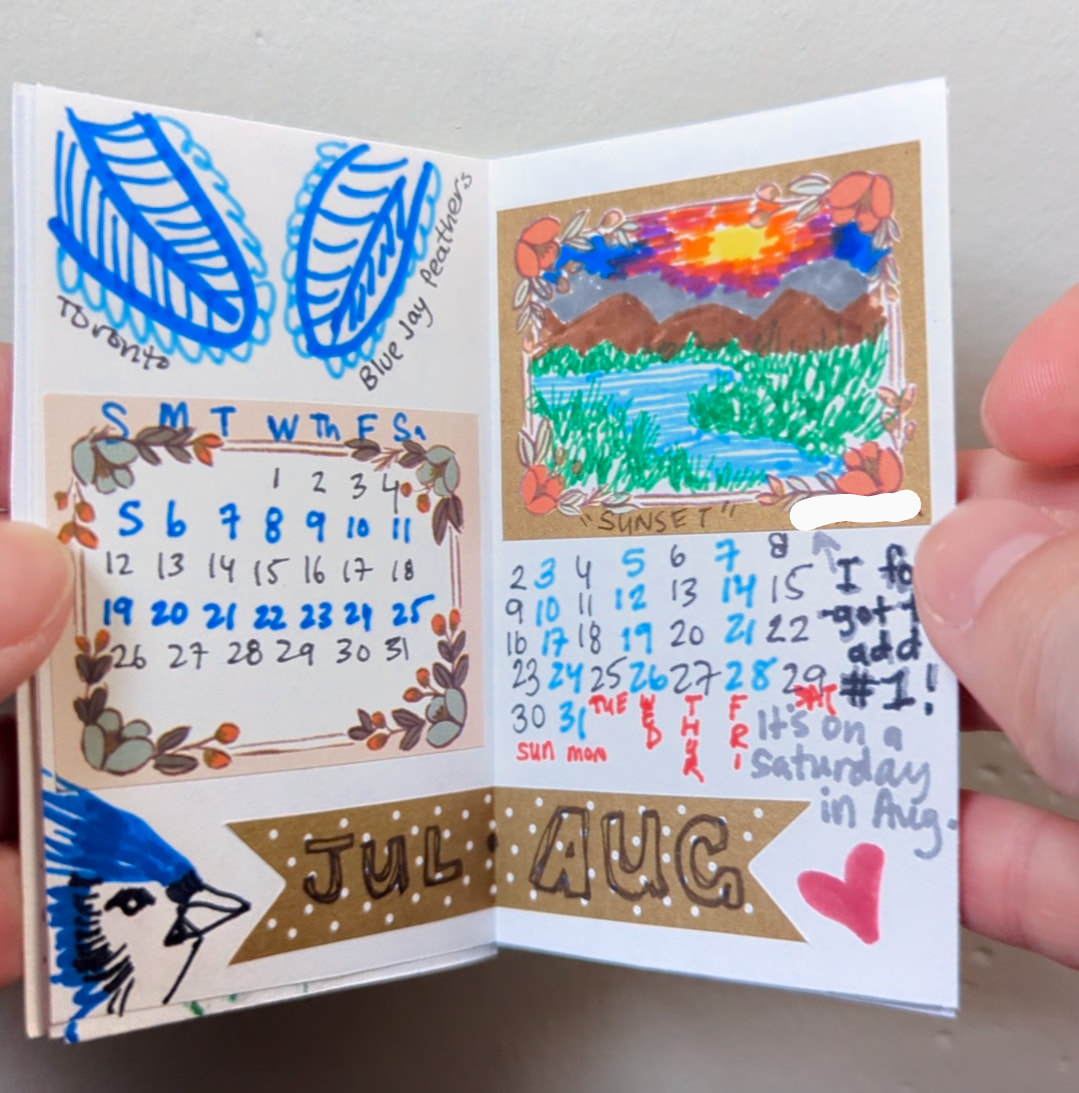 Toronto
Blue Jay feathers
S M T W Th F Sa
1 2 3 4
5 6 7 8 9 10 11
12 13 14 15 16 17 18
19 20 21 22 23 24 25
26 27 28 29 30 31
JUL
"SUNSET"
2 3 4 5 6 7 8
9 10 11 12 13 14 15
16 17 18 19 20 21 22
23 24 25 26 27 28 29
30 31 TUE WED THUR FRI SAT
sun mon
I fo
got t
add
#1!
It's on a
saturday
in Aug.
AUG.